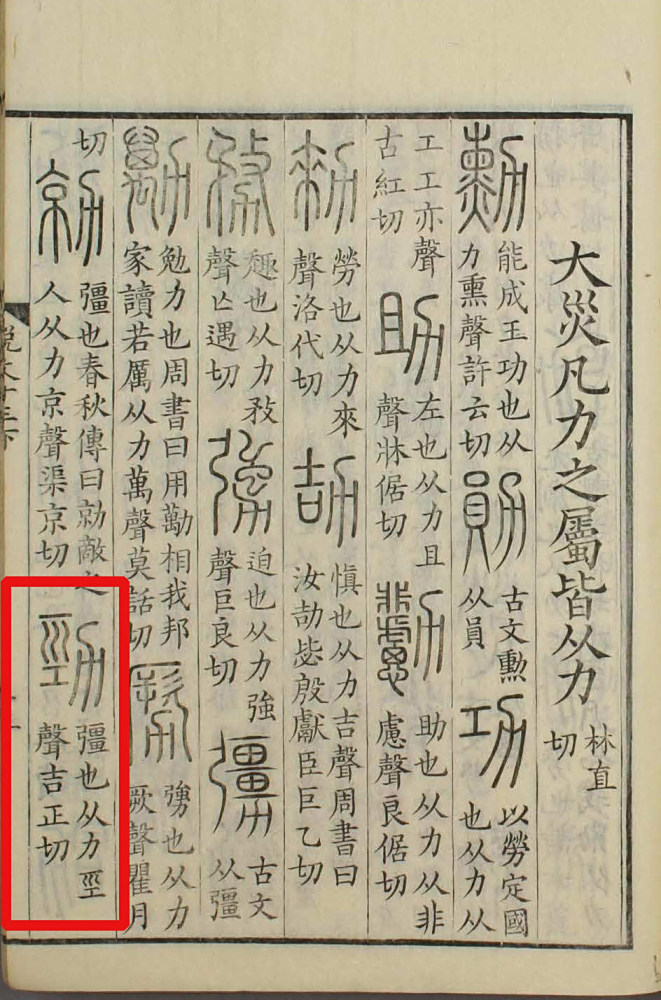 大災凡力之屬皆从力林直切
勳能成王功也从力熏聲許云切勛古文勳从員功以勞定國也从力从
工工亦聲古紅切助左也从力且聲牀倨切勴助也从力从非慮聲良倨切
勑勞也从力來聲洛代切劼慎也从力吉聲周書曰汝劼毖殷獻臣巨乙切
務趣也从力敄聲亾遇切勥迫也从力強聲巨良切𠣊古文从彊
勱勉力也周書曰用勱相我邦家讀若厲从力萬聲莫話切𠢤勥也从力厥聲瞿月
切勍彊也春秋傳曰勍敵之人从力京聲渠京切勁彊也从力巠聲吉正切
說文十三下